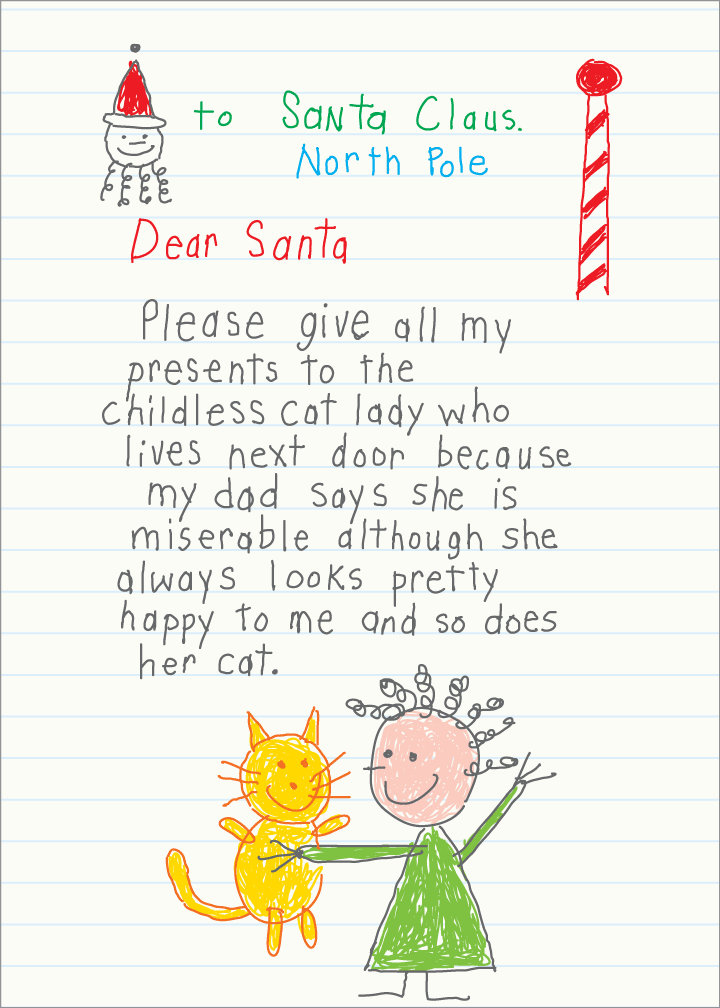 to Santa Claus.
North Pole
Dear Santa
Please give all my
presents to the
childless cat lady who
lives next door because
my dad says she is
miserable although she
always looks pretty
happy to me and so does
her cat.